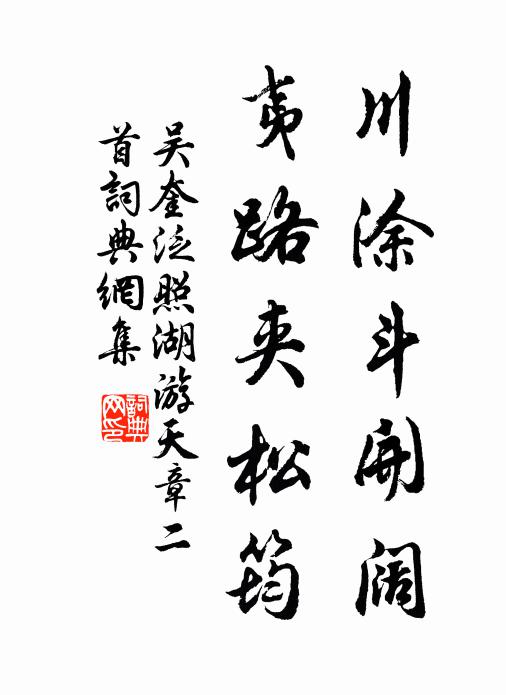 川涂斗开阔
夷路夹松筠
吴奎泛照湖游天章二
首詞典網集
詞典网印